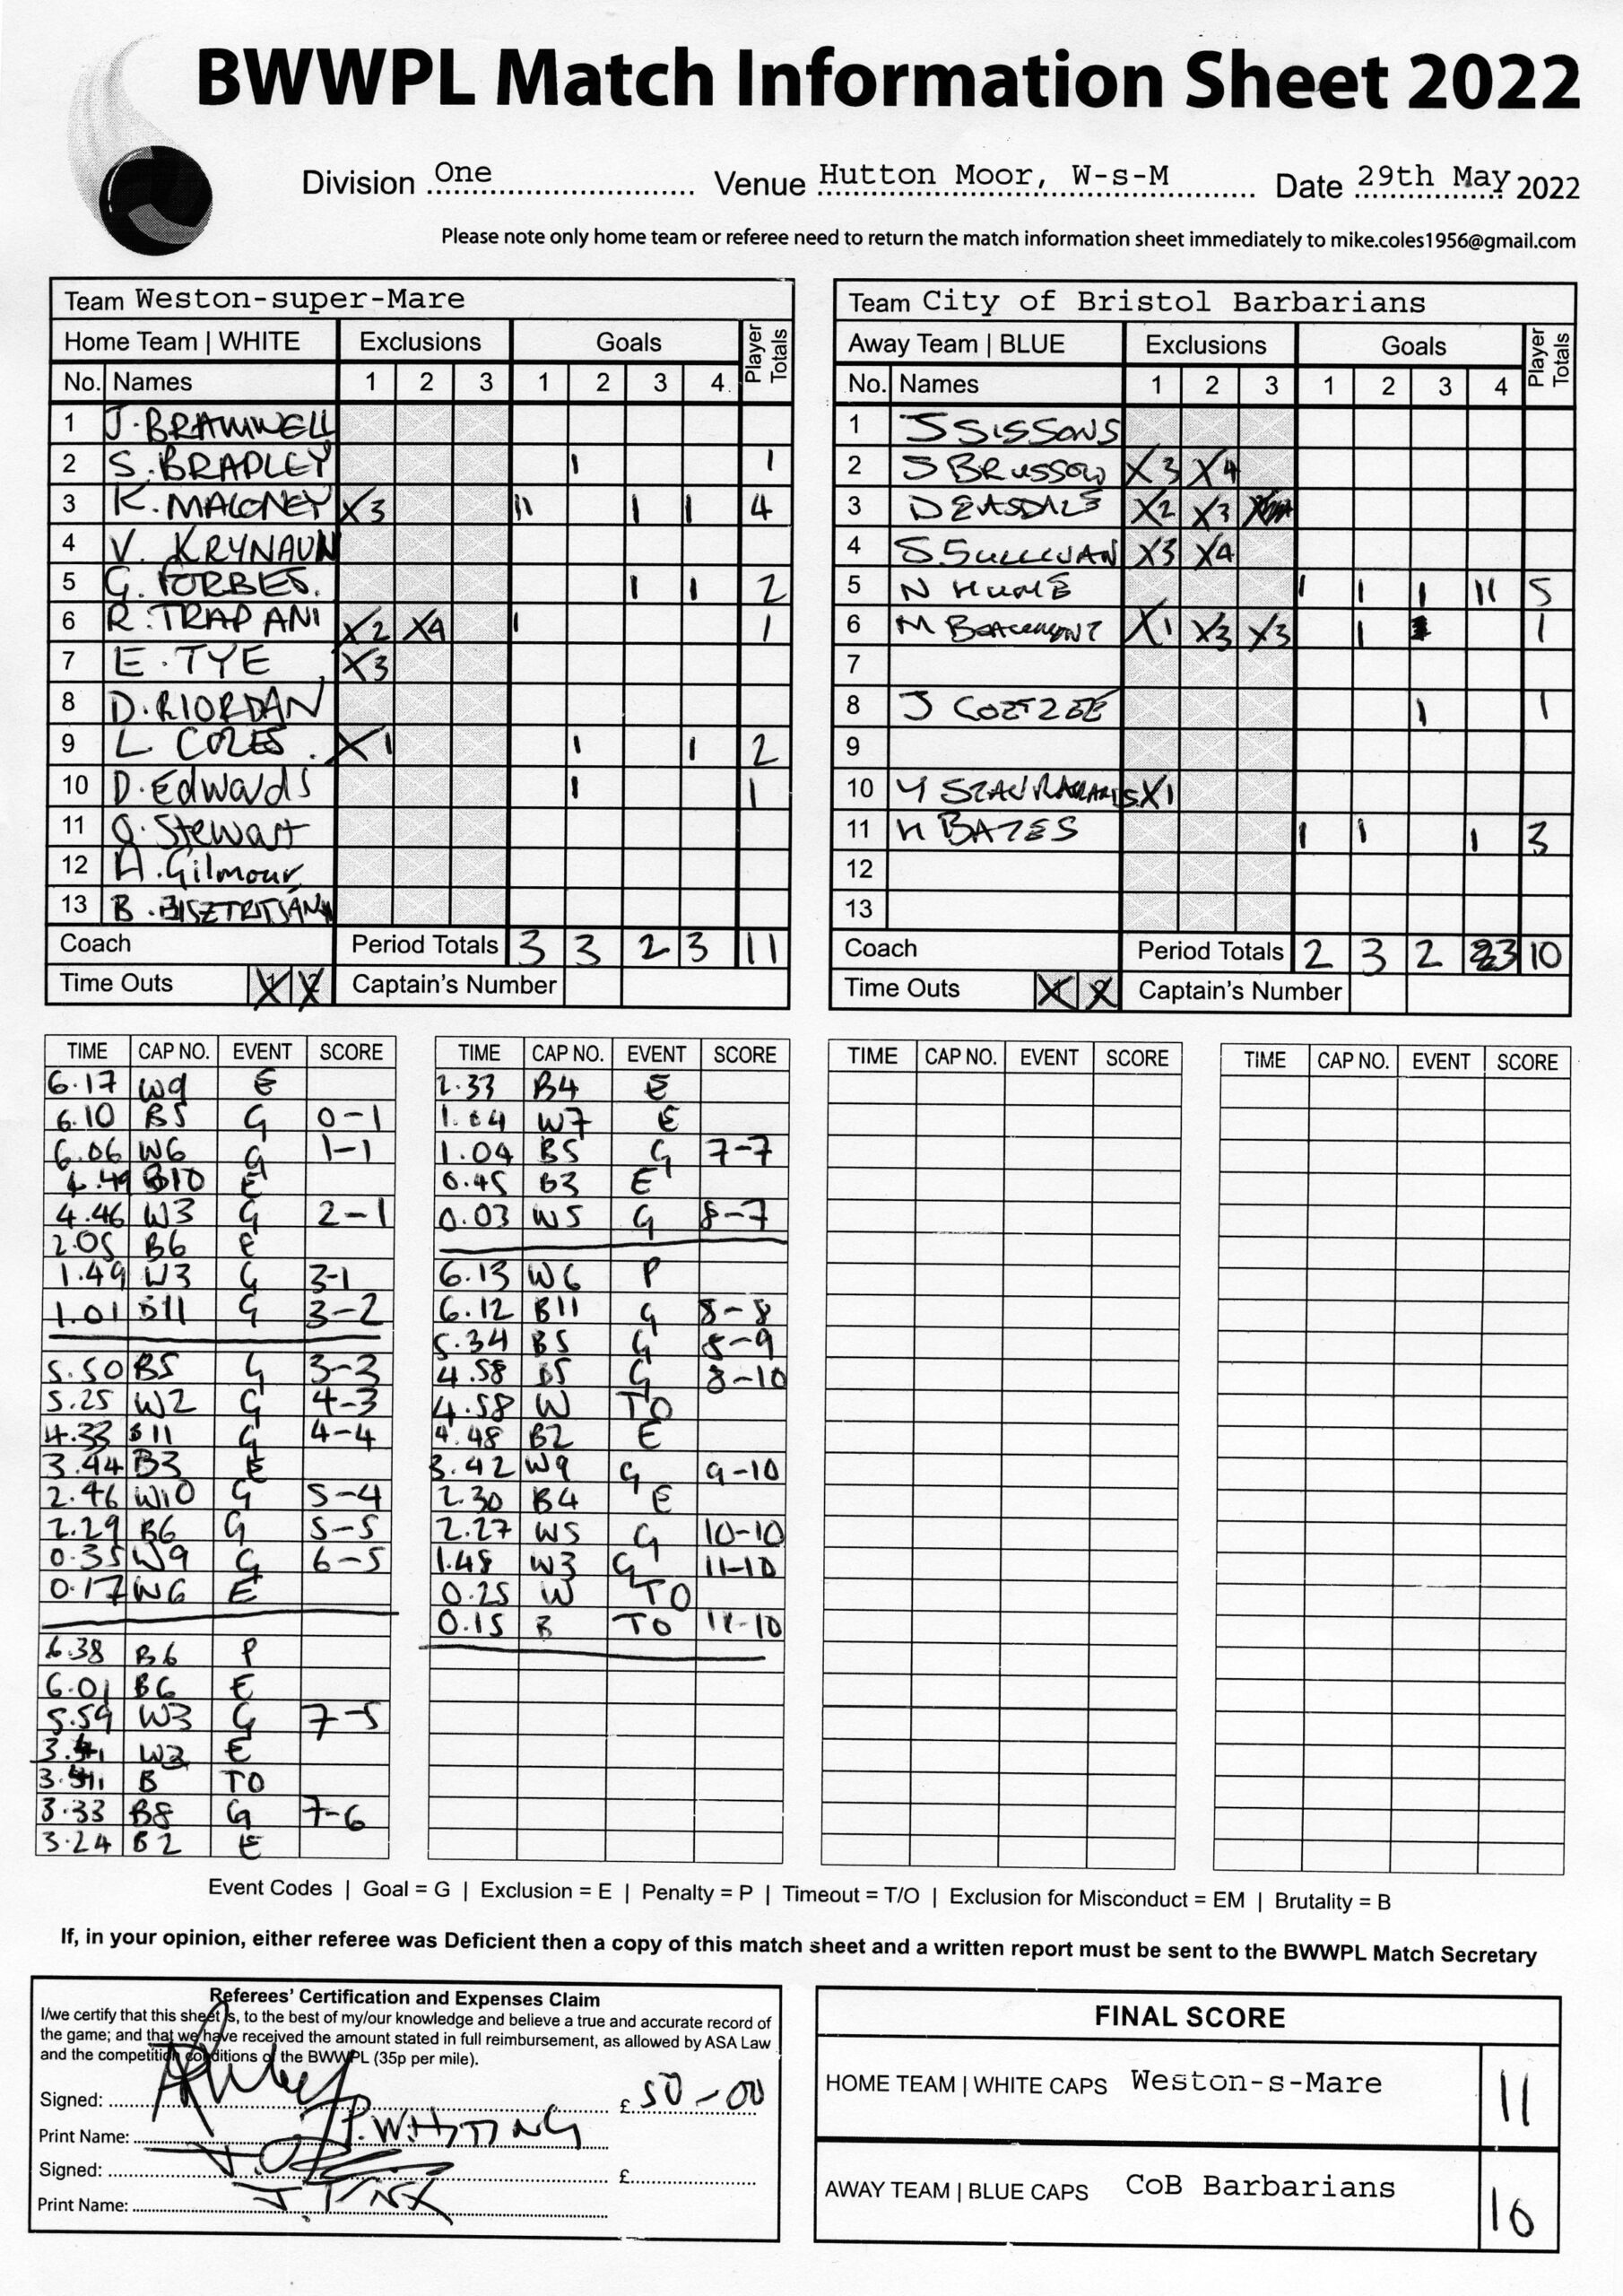 BWWPL Match Information Sheet 2022
Division One Venue Hutton Moor, W-s-M Date 29th May 2022
Please note only home team or referee need to return the match information sheet immediately to mike.coles1956@gmail.com
Team Weston-super-Mare
Home Team | WHITE Exclusions Goals Player Totals
No. Names 1 2 3 1 2 3 4
1 J. BRAMWELL
2 S. BRADLEY 1 1
3 K. MALONEY X3 11 1 1 4
4 V. KRYNAUW
5 G. FORBES. 1 1 2
6 R. TRAPANI X2 X4 1 1
7 E. TYE X3
8 D. RIORDAN
9 L COLES. X1 1 1 2
10 D. Edwards 1 1
11 O. Stewart
12 H. Gilmour
13 B.
Coach Period Totals 3 3 2 3 11
Time Outs X X Captain's Number
Team City of Bristol Barbarians
Away Team | BLUE Exclusions Goals Player Totals
No. Names 1 2 3 1 2 3 4
1 J SISSONS
2 S BRUSSOW X3 X4
3 D EASDALE X2 X3
4 S. SULLIVAN X3 X4
5 N HUME 1 1 1 11 5
6 M BEAUMONT X1 X3 X3 1 1
7
8 J COETZEE 1 1
9
10 Y X1
11 H BATES 1 1 1 3
12
13
Coach Period Totals 2 3 2 3 10
Time Outs X X Captain's Number
TIME CAP NO. EVENT SCORE
6.17 W9 E
6.10 B5 G 0-1
6.06 W6 G 1-1
4.49 B10 E
4.46 W3 G 2-1
2.05 B6 E
1.49 W3 G 3-1
1.01 B11 G 3-2
5.50 B5 G 3-3
5.25 W2 G 4-3
4.33 B11 G 4-4
3.44 B3 E
2.46 W10 G 5-4
2.29 B6 G 5-5
0.35 W9 G 6-5
0.17 W6 E
6.38 B6 P
6.01 B6 E
5.59 W3 G 7-5
3.41 W3 E
3.41 B TO
3.33 B8 G 7-6
3.24 B2 E
TIME CAP NO. EVENT SCORE
2.33 B4 E
1.04 W7 E
1.04 B5 G 7-7
0.45 B3 E
0.03 W5 G 8-7
6.13 W6 P
6.12 B11 G 8-8
5.34 B5 G 8-9
4.58 B5 G 8-10
4.58 W TO
4.48 B2 E
3.42 W9 G 9-10
2.30 B4 E
2.27 W5 G 10-10
1.48 W3 G 11-10
0.25 W TO
0.15 B TO 11-10
TIME CAP NO. EVENT SCORE
TIME CAP NO. EVENT SCORE
Event Codes | Goal = G | Exclusion = E | Penalty = P | Timeout = T/O | Exclusion for Misconduct = EM | Brutality = B
If, in your opinion, either referee was Deficient then a copy of this match sheet and a written report must be sent to the BWWPL Match Secretary
Referees' Certification and Expenses Claim
I/we certify that this sheet is, to the best of my/our knowledge and believe a true and accurate record of
the game; and that we have received the amount stated in full reimbursement, as allowed by ASA Law
and the competition conditions of the BWWPL (35p per mile).
Signed: £ 50-00
Print Name: P. WHITING
Signed: £
Print Name:
FINAL SCORE
HOME TEAM | WHITE CAPS Weston-s-Mare 11
AWAY TEAM | BLUE CAPS CoB Barbarians 10